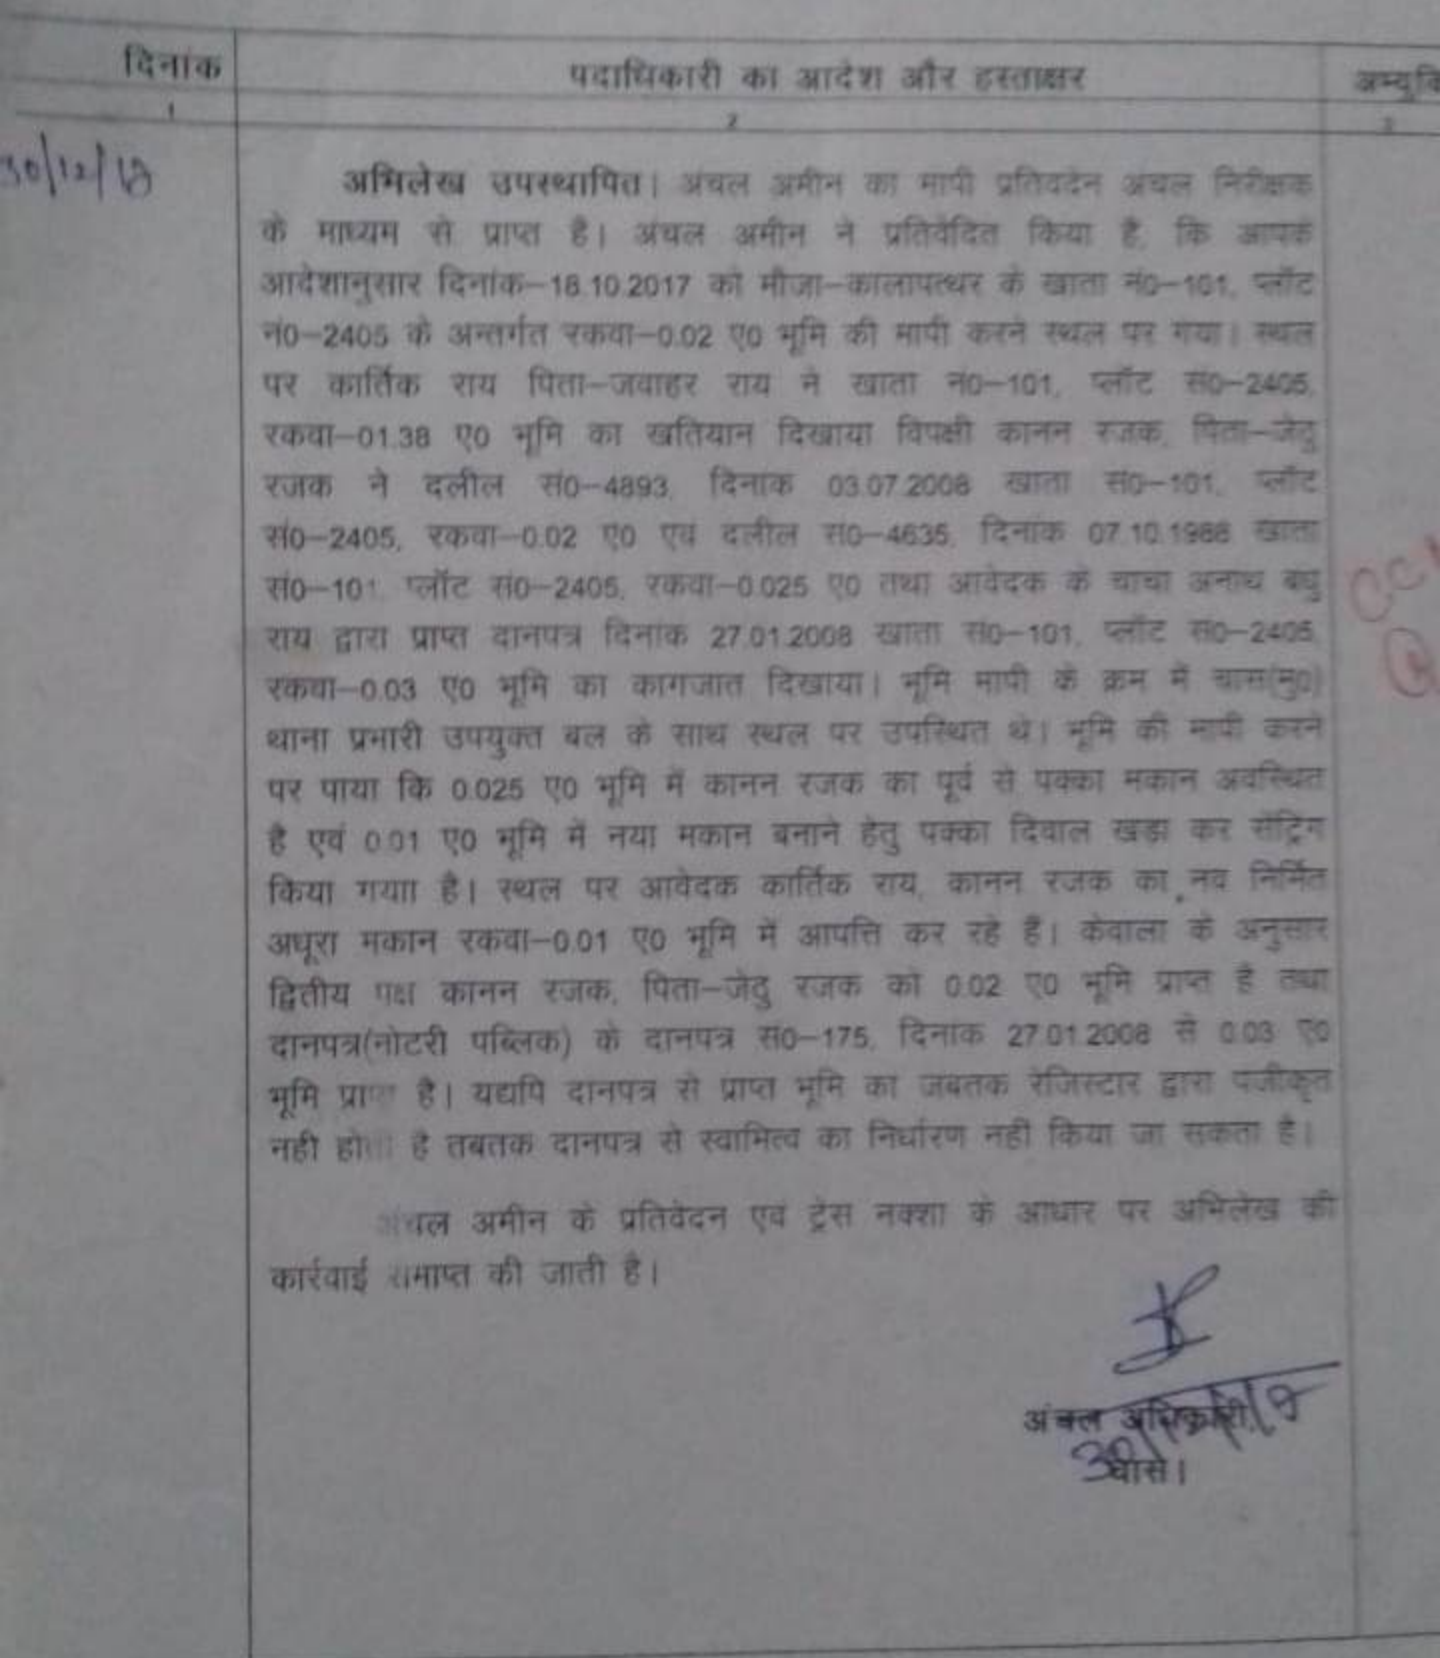 दिनांक
पदाधिकारी का आदेश और हस्ताक्षर
1
2
3
30/12/17
अभिलेख उपस्थापित। अंचल अमीन का मापी प्रतिवदेन अंचल निरीक्षक
के माध्यम से प्राप्त है। अंचल अमीन ने प्रतिवेदित किया है, कि आपके
आदेशानुसार दिनांक-18.10.2017 को मौजा-कालापत्थर के खाता नं0-101, प्लॉट
नं0-2405 के अन्तर्गत रकवा-0.02 ए0 भूमि की मापी करने स्थल पर गया। स्थल
पर कार्तिक राय पिता-जवाहर राय ने खाता नं0-101, प्लॉट सं0-2405,
रकवा-01.38 ए0 भूमि का खतियान दिखाया विपक्षी कानन रजक, पिता-जेठु
रजक ने दलील सं0-4893, दिनांक 03.07.2008 खाता सं0-101, प्लॉट
सं0-2405, रकवा-0.02 ए0 एवं दलील सं0-4635, दिनांक 07.10.1988 खाता
सं0-101 प्लॉट सं0-2405, रकवा-0.025 ए0 तथा आवेदक के चाचा अनाथ बंधु
राय द्वारा प्राप्त दानपत्र दिनांक 27.01.2008 खाता सं0-101, प्लॉट सं0-2405,
रकवा-0.03 ए0 भूमि का कागजात दिखाया। भूमि मापी के क्रम में चास(मु0)
थाना प्रभारी उपयुक्त बल के साथ स्थल पर उपस्थित थे। भूमि की मापी करने
पर पाया कि 0.025 ए0 भूमि में कानन रजक का पूर्व से पक्का मकान अवस्थित
है एवं 0.01 ए0 भूमि में नया मकान बनाने हेतु पक्का दिवाल खड़ा कर सेंट्रिंग
किया गयाा है। स्थल पर आवेदक कार्तिक राय, कानन रजक का नव निर्मित
अधूरा मकान रकवा-0.01 ए0 भूमि में आपत्ति कर रहे हैं। केवाला के अनुसार
द्वितीय पक्ष कानन रजक, पिता-जेठु रजक को 0.02 ए0 भूमि प्राप्त है तथा
दानपत्र(नोटरी पब्लिक) के दानपत्र सं0-175, दिनांक 27.01.2008 से 0.03 ए0
भूमि प्राप्त है। यद्यपि दानपत्र से प्राप्त भूमि का जबतक रेजिस्टार द्वारा पंजीकृत
नही होता है तबतक दानपत्र से स्वामित्व का निर्धारण नही किया जा सकता है।
अंचल अमीन के प्रतिवेदन एवं ट्रेस नक्शा के आधार पर अभिलेख की
कार्रवाई समाप्त की जाती है।
अंचल अधिकारी,
चास।